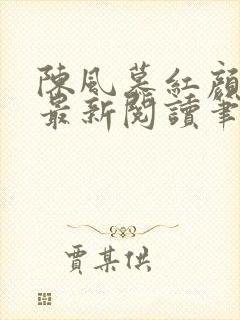 陳風墓紅顏
最新閱讀筆
賈某供